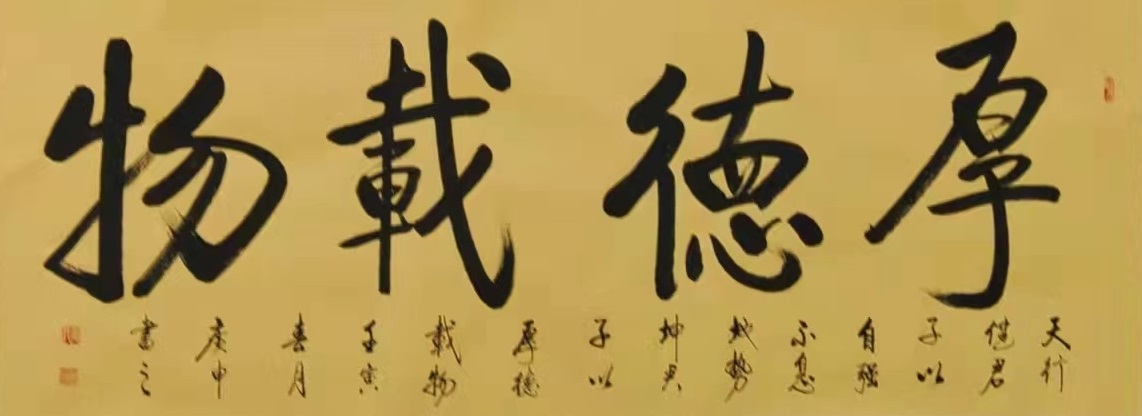 厚德載物
天行
健君
子以
自強
不息
地勢
坤君
子以
厚德
載物
壬寅
春月
書之